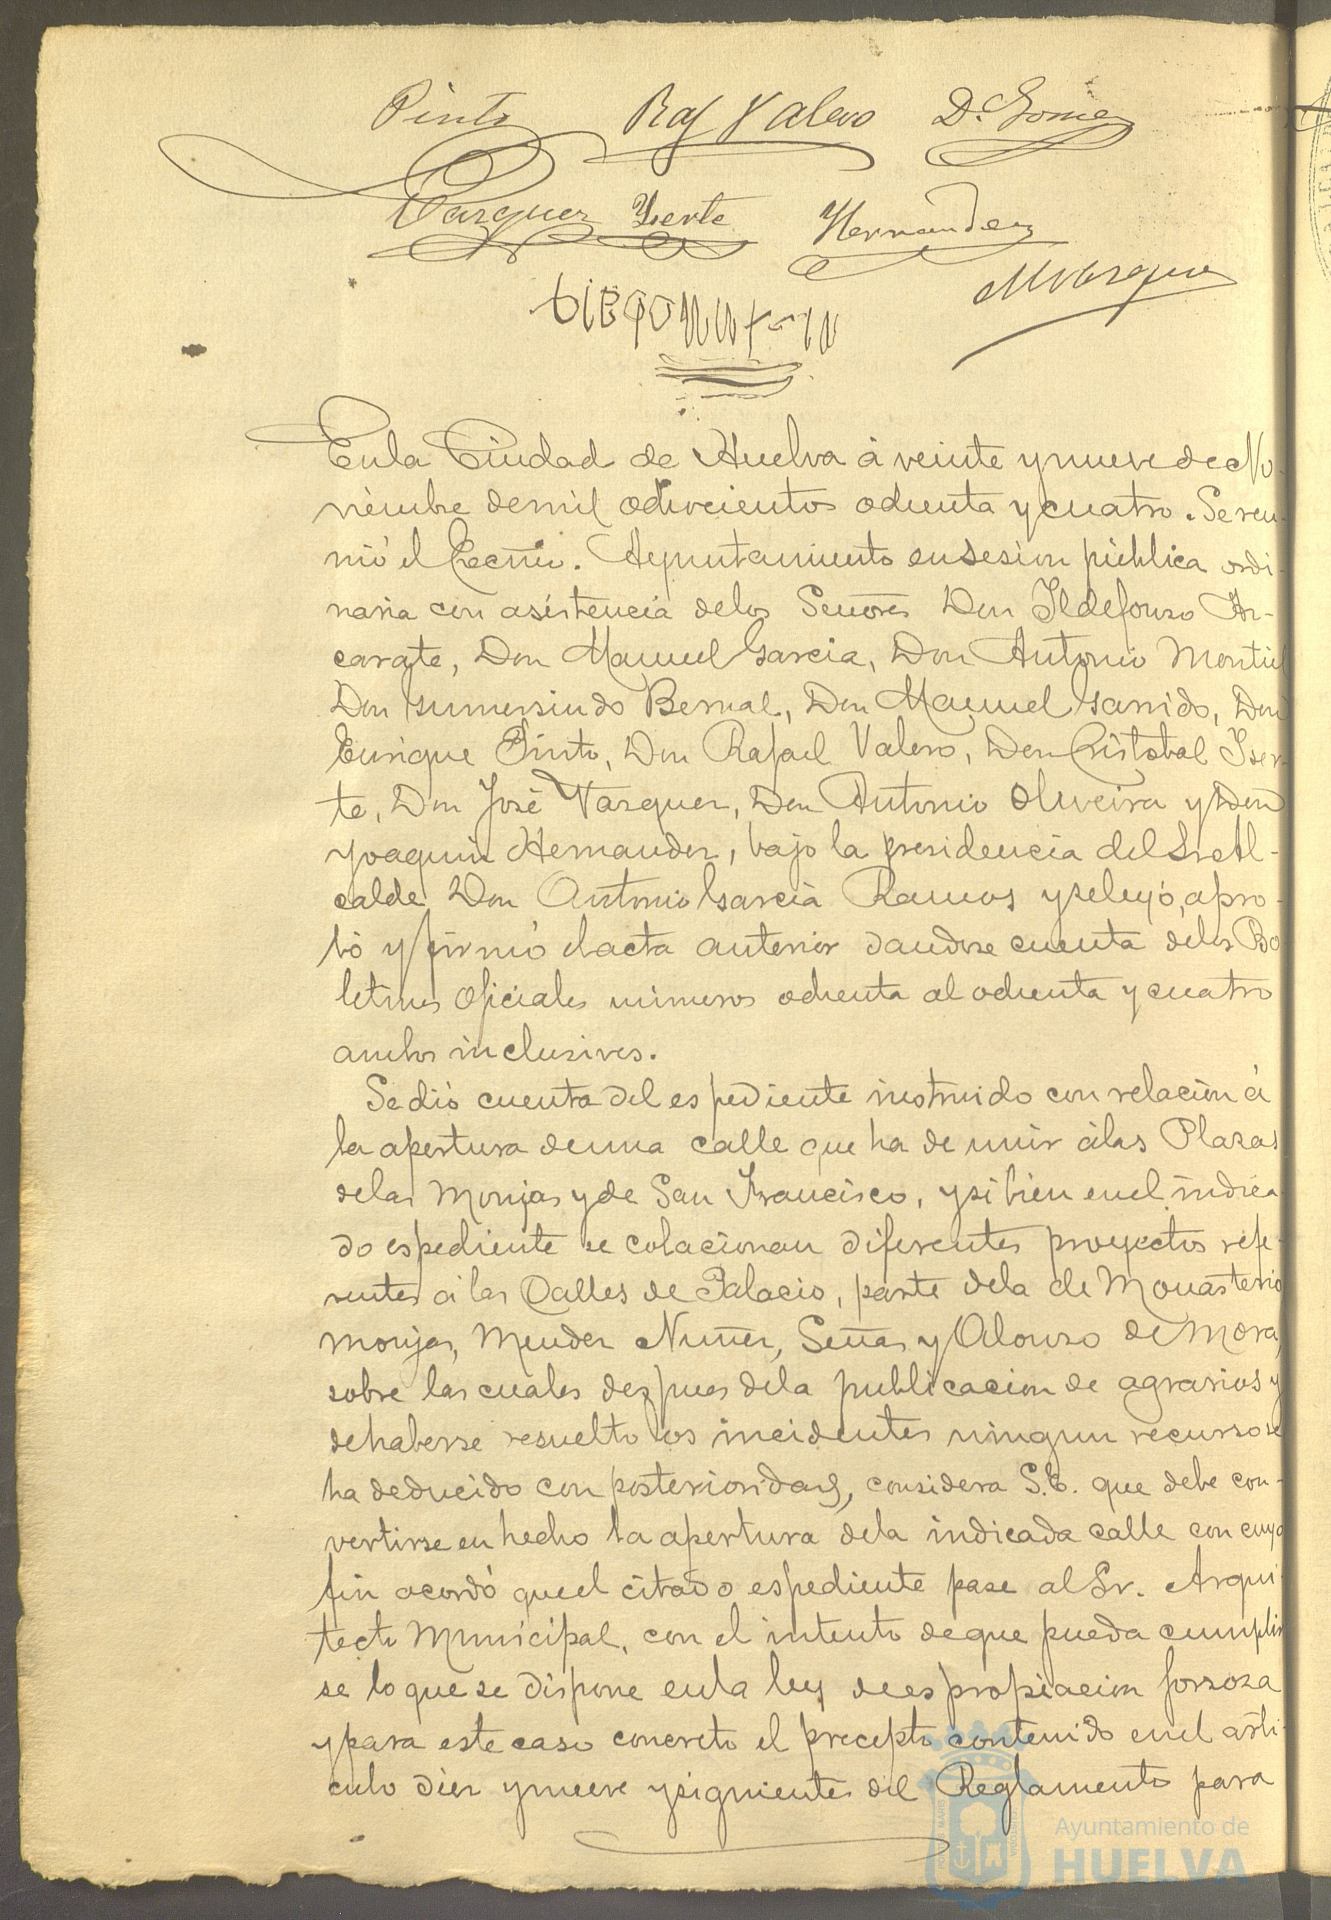 Pinto Raf Valero D. Gomez
Vazquez Yserte Hernandez
M Vazquez
DIEGO
En la Ciudad de Huelva á veinte y nueve de No-
viembre de mil ochocientos ochenta y cuatro. Se reu-
nió el Excmo. Ayuntamiento en sesion pública ordi-
naria con asistencia de los Señores Don Ildefonso Az-
carate, Don Manuel Garcia, Don Antonio Montiel
Don Gumersindo Bernal, Don Manuel Garrido, Don
Enrique Pinto, Don Rafael Valero, Don Cristobal Iser-
te, Don José Vazquez, Don Antonio Oliveira y Don
Joaquin Hernandez, bajo la presidencia del Sr. Al-
calde Don Antonio Garcia Ramos y se leyó, apro-
bó y firmó el acta anterior dandose cuenta de los Bo
letines Oficiales números ochenta al ochenta y cuatro
ambos inclusives.
Se dió cuenta del espediente instruido con relacion á
la apertura de una calle que ha de unir á las Plazas
de las Monjas y de San Francisco, y si bien en el indica
do espediente se colacionan diferentes proyectos refe-
rentes á las Calles de Palacio, parte de la de Monasterio
monjas, Mendez Nuñez, Señas y Alonso de Mora,
sobre las cuales despues de la publicacion de agravios y
de haberse resuelto los incidentes ningun recurso se
ha deducido con posterioridad, considera S.E. que debe con-
vertirse en hecho la apertura de la indicada calle con cuyo
fin acordó que el citado espediente pase al Sr. Arqui-
tecto Municipal, con el intento de que pueda cumplir
se lo que se dispone en la ley de espropiacion forzoza
y para este caso concreto el precepto contenido en el arti-
culo diez y nueve y siguientes del Reglamento para
Ayuntamiento de
HUELVA